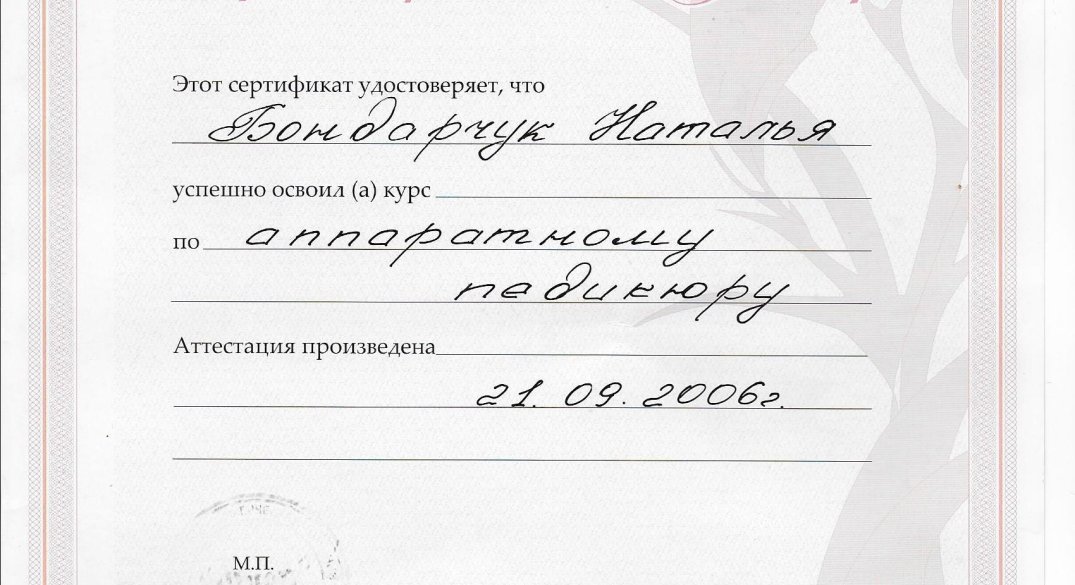 Этот сертификат удостоверяет, что
Бондарчук Наталья
успешно освоил (а) курс
по аппаратному
педикюру
Аттестация произведена
21. 09. 2006г.
М.П.